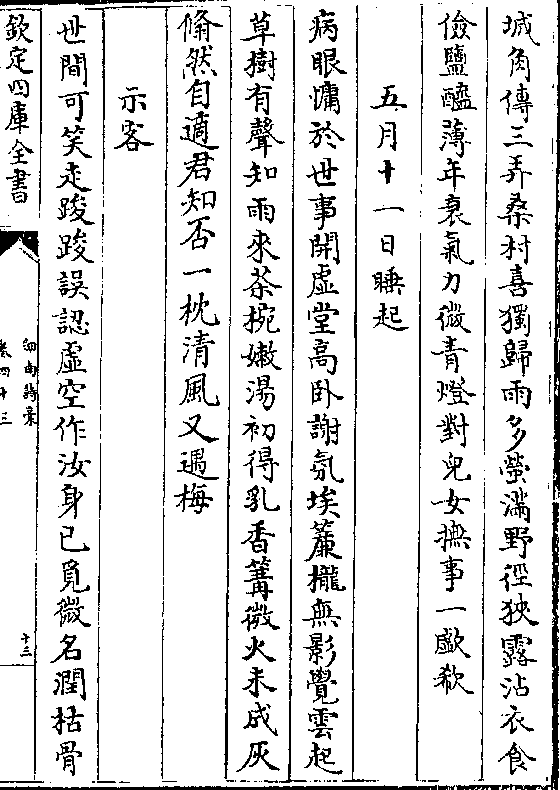 城角傳三弄桑村喜獨歸雨多螢滿野徑狹露沾衣食
儉鹽醯薄年衰氣力微青燈對兒女撫事一歔欷
五月十一日睡起
病眼慵於世事開虛堂高卧謝氛埃簾櫳無影覺雲起
草樹有聲知雨來茶椀嫩湯初得乳香篝微火未成灰
翛然自適君知否一枕清風又過梅
示客
世間可笑走踆踆誤認虛空作汝身已覓微名潤枯骨
欽定四庫全書
劍南詩稾
卷四十三
十三